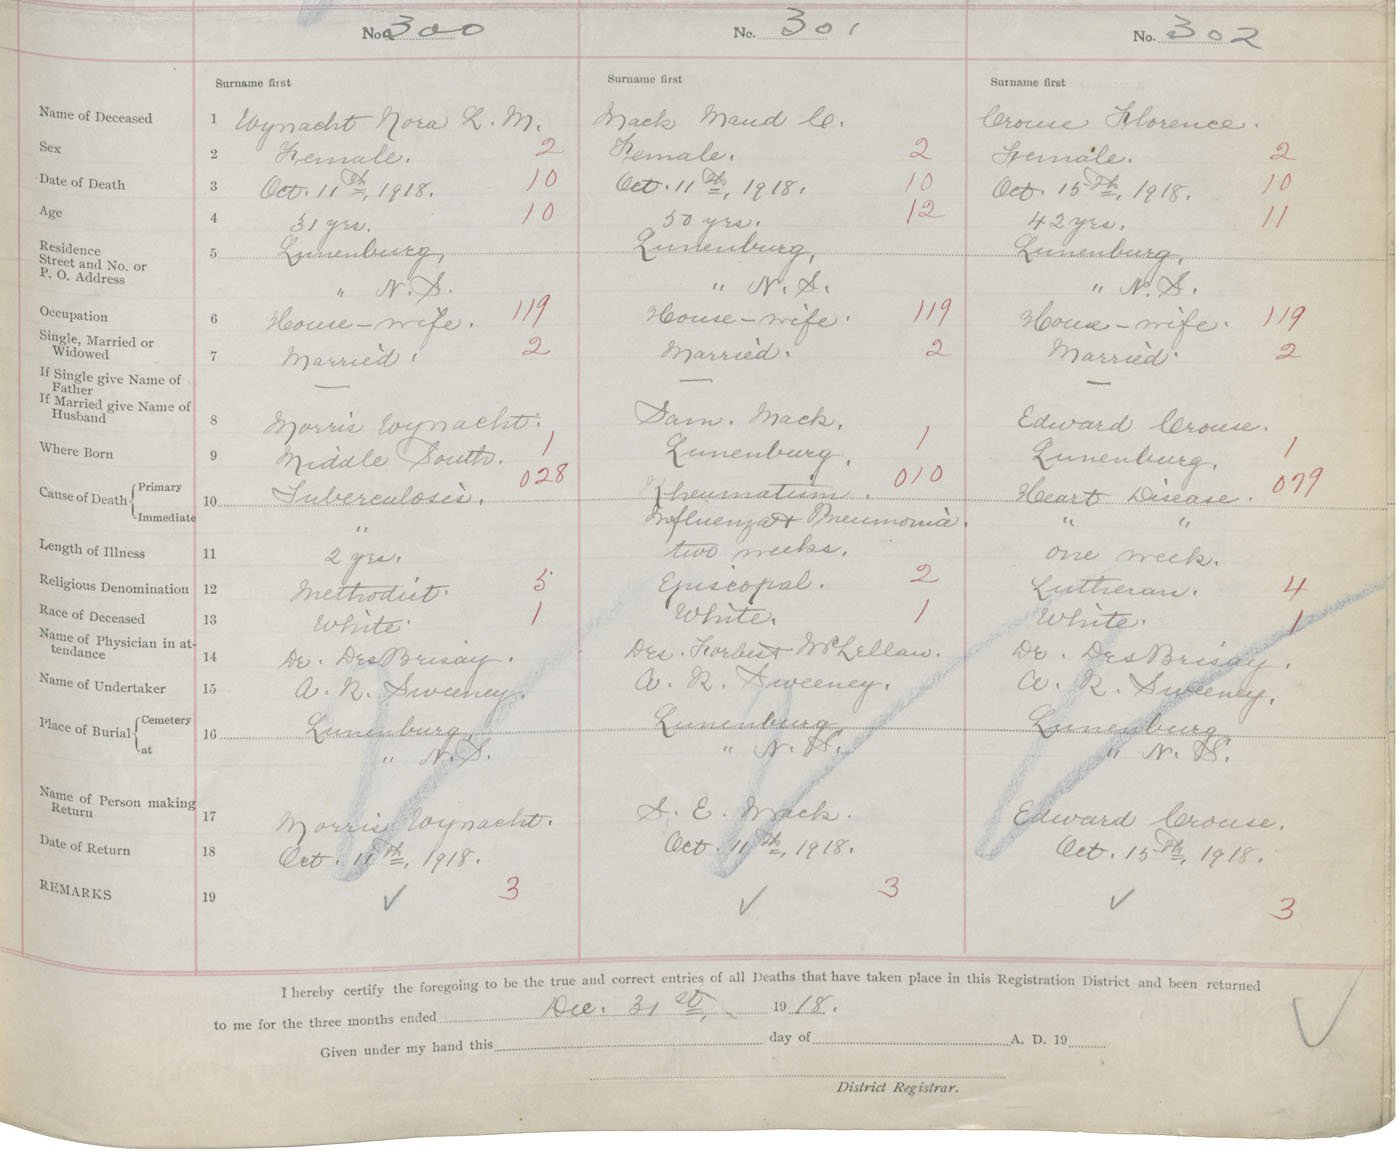 No. 300 No. 301 No. 302
Surname first Surname first Surname first
Name of Deceased 1 Wynacht Nora L. M. Mack Maud C. Crouse Florence.
Sex 2 Female. 2 Female. 2 Female. 2
Date of Death 3 Oct. 11th, 1918. 10 Oct. 11th, 1918. 10 Oct. 15th, 1918. 10
Age 4 31 yrs. 10 50 yrs. 12 42 yrs. 11
Residence
Street and No. or
P. O. Address 5 Lunenburg, Lunenburg, Lunenburg,
" N. S. " N. S. " N. S.
Occupation 6 House-wife. 119 House-wife. 119 House-wife. 119
Single, Married or
Widowed 7 Married. 2 Married. 2 Married. 2
If Single give Name of
Father — — —
If Married give Name of
Husband 8 Morris Wynacht. Sam. Mack. Edward Crouse.
Where Born 9 Middle South. 1 Lunenburg. 1 Lunenburg. 1
Cause of Death Primary 10 Tuberculosis. 028 Rheumatism. 010 Heart Disease. 079
Immediate " Influenza & Pneumonia. " "
Length of Illness 11 2 yrs. two weeks. one week.
Religious Denomination 12 Methodist. 5 Episcopal. 2 Lutheran. 4
Race of Deceased 13 White. 1 White. 1 White. 1
Name of Physician in at-
tendance 14 Dr. DesBrisay. Drs. Forbes & McLellan. Dr. DesBrisay.
Name of Undertaker 15 A. R. Sweeney. A. R. Sweeney. A. R. Sweeney.
Place of Burial Cemetery 16 Lunenburg Lunenburg Lunenburg
at " N. S. " N. S. " N. S.
Name of Person making
Return 17 Morris Wynacht. S. E. Mack. Edward Crouse.
Date of Return 18 Oct. 11th, 1918. Oct. 11th, 1918. Oct. 15th, 1918.
REMARKS 19 ✓ 3 ✓ 3 ✓ 3
I hereby certify the foregoing to be the true and correct entries of all Deaths that have taken place in this Registration District and been returned
to me for the three months ended Dec. 31st, 1918.
Given under my hand this day of A. D. 19
District Registrar.